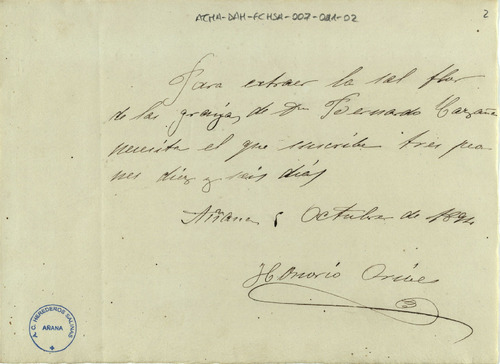 ACHA-DAH-FCHSA-007-021-02
2
Para extraer la sal flor
de las granjas de Dn Bernardo
necesita el que suscribe tres peo
nes diez y seis días
Añana 5 Octubre de 1894
Honorio Orive
A.C. HEREDEROS SALINAS
AÑANA